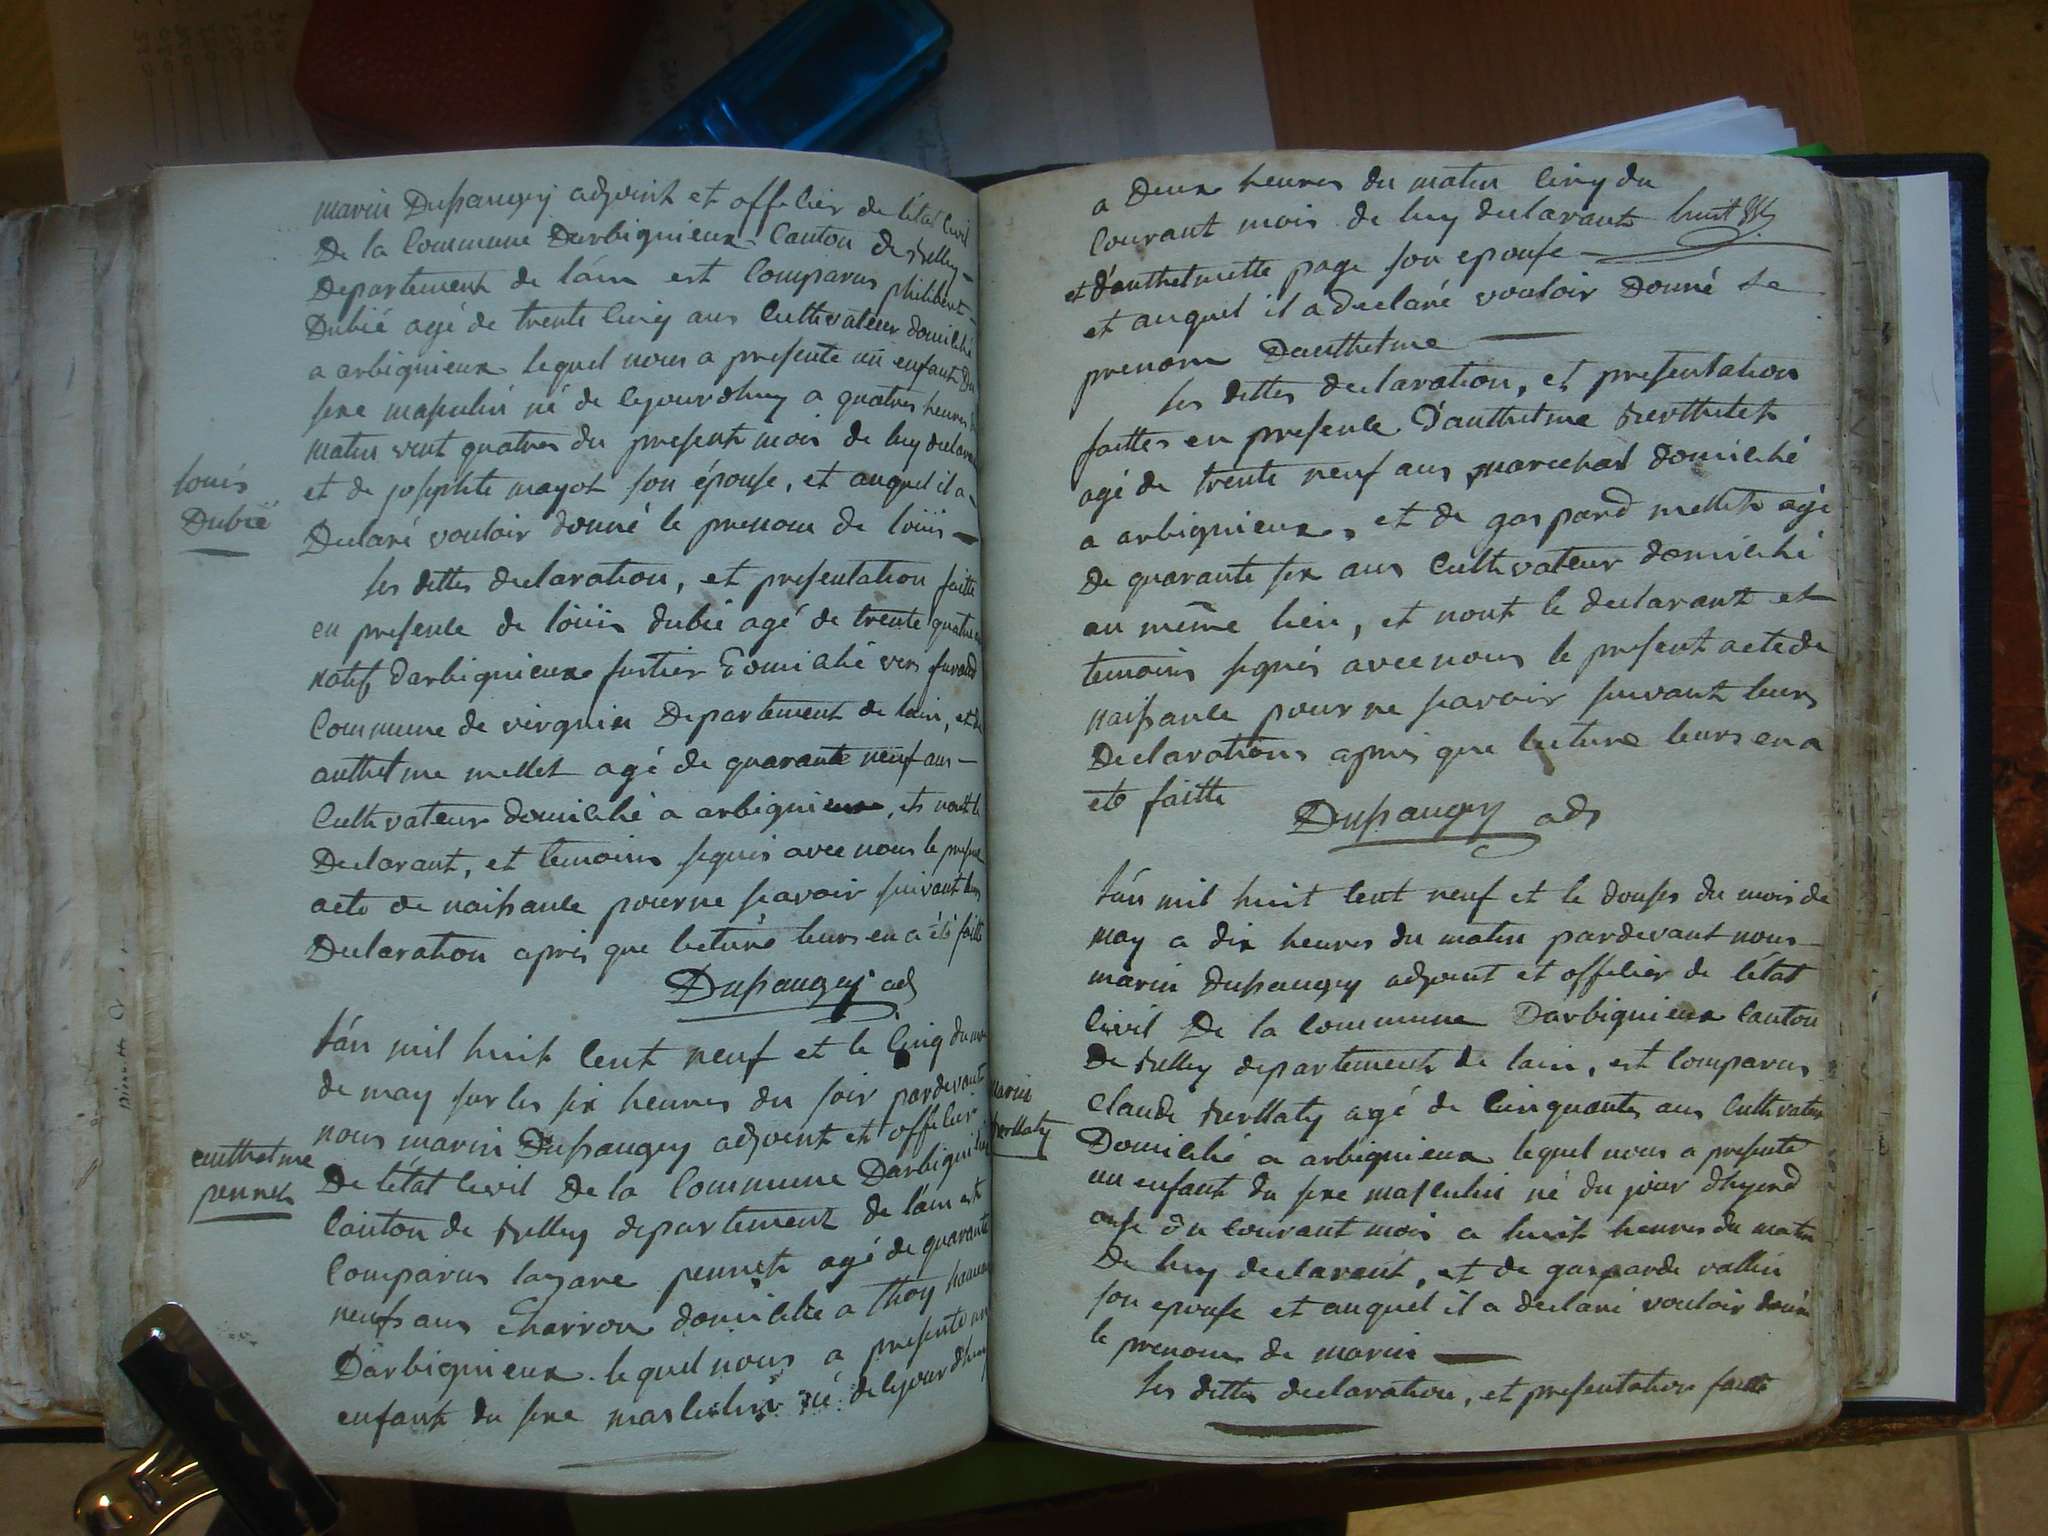 marin Dupaugey adjoint et officier de l'état civil
De la Commune Darbignieux Canton de Belley
Departement de láin est Comparus philibert
Dubié agé de trente cinq ans Cultivateur domicilié
a arbignieux lequel nous a presenté un enfant Du
sexe masculin né de cejourdhuy a quatres heures
matin vent quatres du present mois de luy declarant
et de josephte mayot son épouse, et auquel il a
Declaré vouloir donné le prenom de loüis
louis
Dubié
les dittes declaration, et presentation faitte
en presence de loüis dubié agé de trente quatre
natif darbignieux domicilié vers
Commune de virgnin Departement de lain, et de
anthelme mellet agé de quarante neuf ans
Cultivateur domicilié a arbignieux, et nont le
Declarant, et temoins signés avec nous le present
acte de naissance pour ne scavoir suivant leurs
Declaration apres que lecture leurs en a été faitte
Dupaugey adj
lán mil huit cent neuf et le cinq du mois
de may sur les six heures du soir pardevant
nous marin Dupaugey adjoint et officier
De létat civil De la Commune Darbignieux
Canton de Belley departement de láin est
Comparus lazare pennet agé de quarante
neufs ans Charron domicilié a thoy hameau
Darbignieux lequel nous a presenté un
enfant du sexe masculin né de cejourdhuy
anthelme
pennet
a Deux heures du matin cinq du
Courant mois de luy declarant
et d'anthelmette page son epouse
et auquel il a declaré vouloir donné le
prenom Danthelme
les dittes declaration, et presentation
faittes en presence D'anthelme Berthelet
agé de trente neuf ans marechal domicilié
a arbignieux, et de gaspard mellet agé
de quarante six ans Cultivateur domicilié
au même lieu, et nont le declarant et
temoins signés avec nous le present acte de
naissance pour ne scavoir suivant leurs
Declarations apres que lecture leurs en a
eté faitte
Dupaugey adj
lán mil huit cent neuf et le douses du mois de
may a dix heures du matin pardevant nous
marin Dupaugey adjoint et officier de létat
Civil De la Commune Darbignieux Canton
De Belley departement de lain, est Comparus
Claude agé de Cinquantes ans Cultivateur
Domicilié a arbignieux lequel nous a presenté
un enfant du sexe masculin né du jour dhyerd
onse du Courant mois a huit heures du matin
De luy declarant, et de gasparde vallin
son epouse et auquel il a declaré vouloir donné
le prenom de marin
marin
les dittes declaration, et presentation faitte